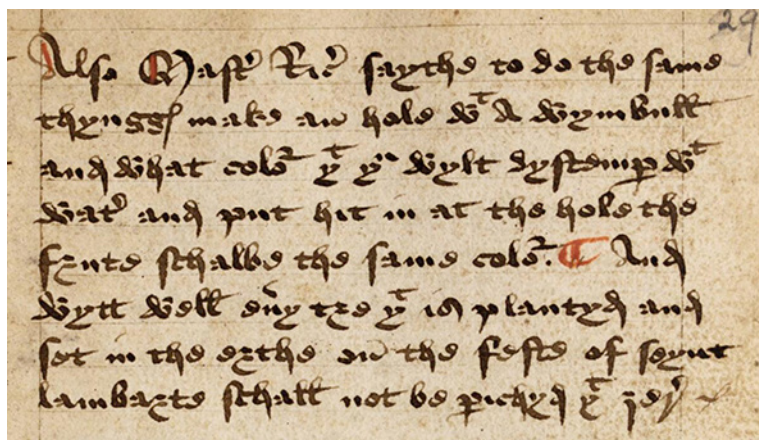 29
Also Mastꝰ Ricꝰ saythe to do the same
thynggꝭ make an hole wᵗ A wymbull
and what coloʳ yᵗ yᵘ wylt dystemꝑ wᵗ
watꝰ and put hit in at the hole the
frute schalbe the same coloʳ. ¶ And
wytt well eu̓y tre yᵗ is plantyd and
set in the erthe on the feste of seynt
lambarte schall not be ꝑichyd yᵗ ȝerꝭ